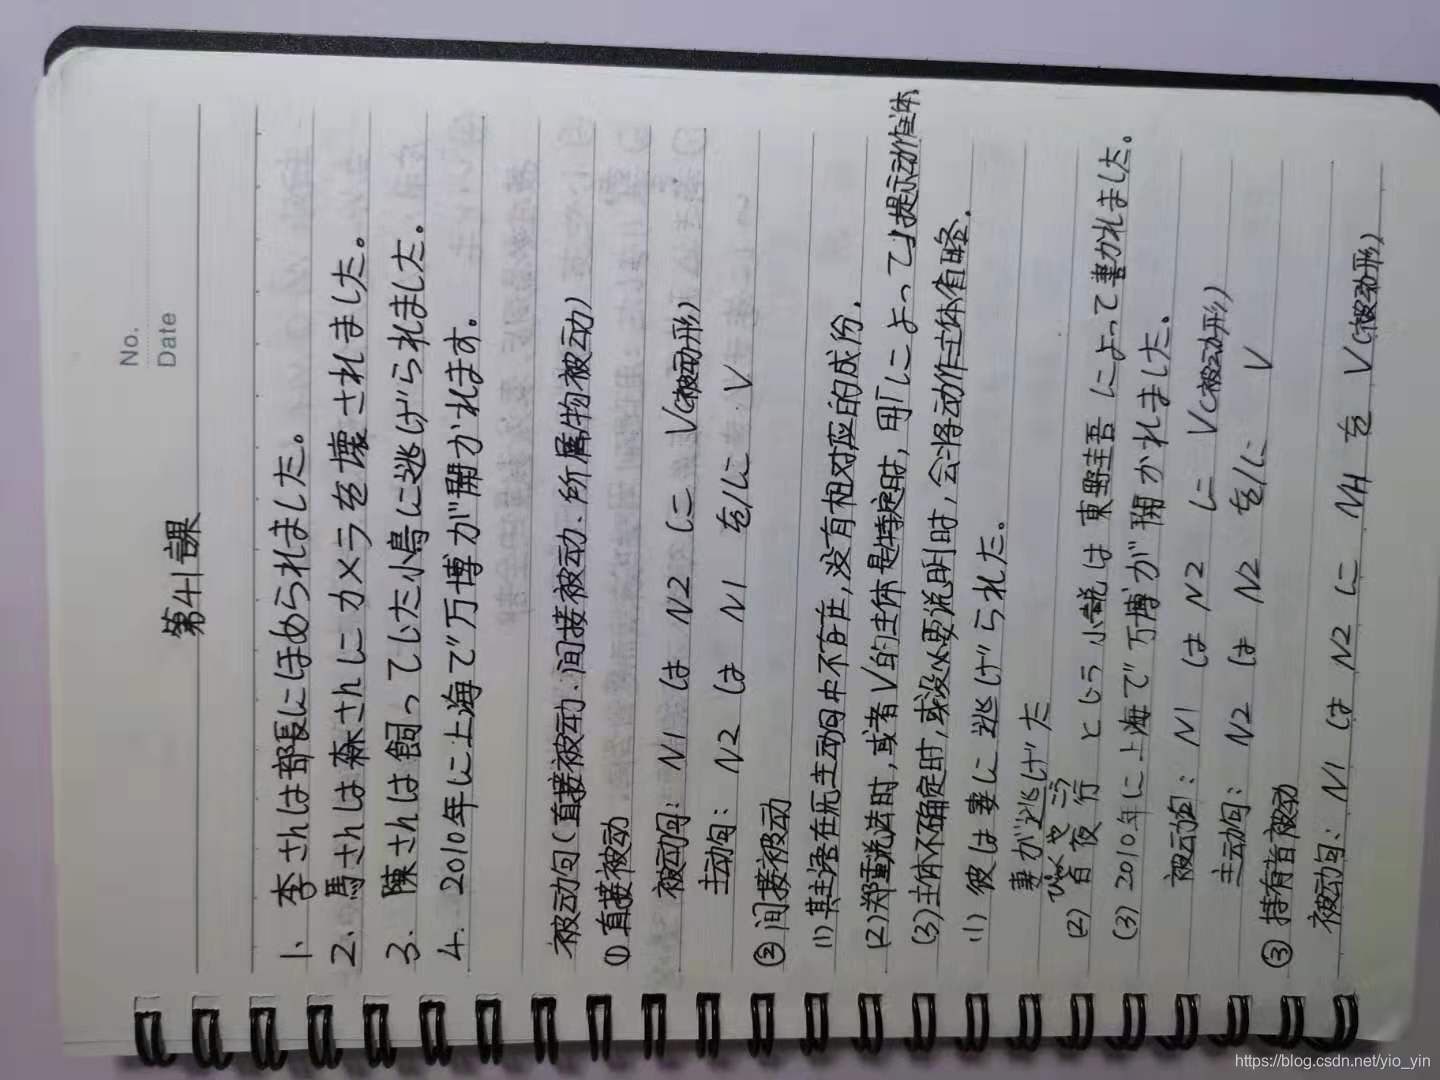 No.
Date
第41課
1、李さんは部長にほめられました。
2、馬さんは森さんにカメラを壊されました。
3、陳さんは飼っていた小鳥に逃げられました。
4、2010年に上海で万博が開かれます。
被动句(直接被动、间接被动、所属物被动)
① 直接被动
被动句: N1 は N2 に V(被动形)
主动句: N2 は N1 を/に V
② 间接被动
(1)其主语在元主动句中不存在,没有相对应的成份.
(2)郑重说法时,或者V的主体是特定时,用「によって」提示动作主体
(3)主体不确定时,或没必要说明时,会将动作主体省略.
(1) 彼は妻に逃げられた。
妻が逃げた
びゃくやこう
(2) 白夜行 という小説は東野圭吾によって書かれました。
(3) 2010年に上海で万博が開かれました。
被动句: N1 は N2 に V(被动形)
主动句: N2 は N2 を/に V
③ 持有者被动
被动句: N1 は N2 に NH を V(被动形)
https://blog.csdn.net/yio_yin